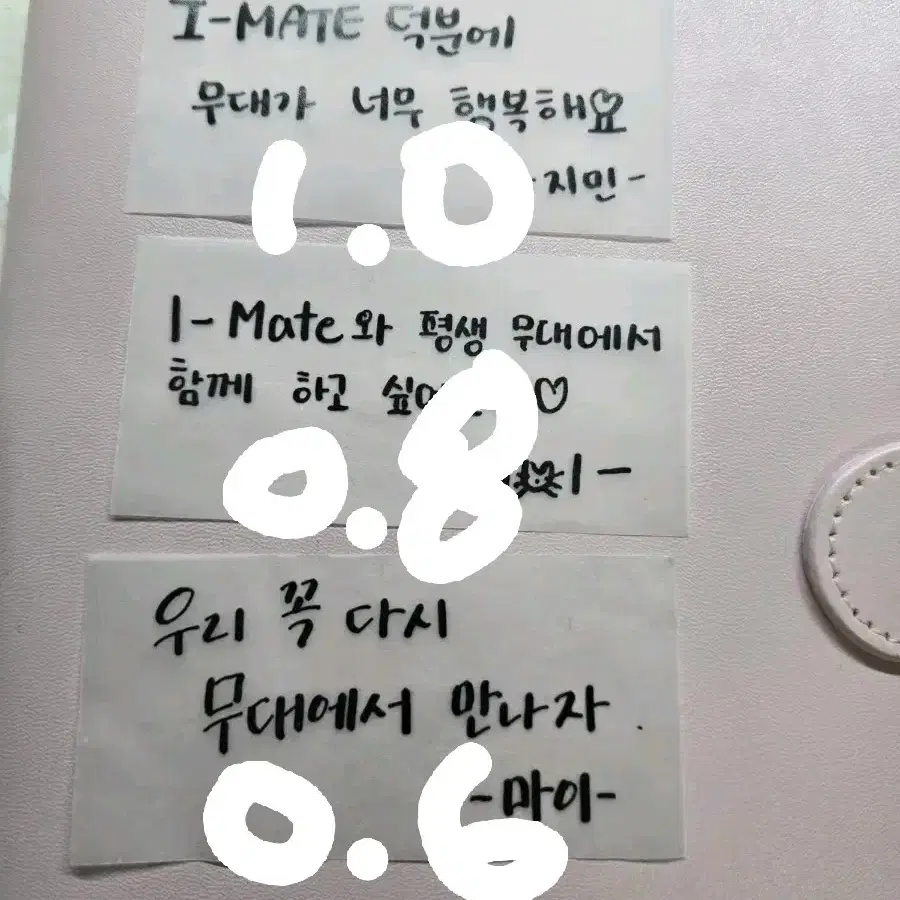 I-MATE 덕분에
무대가 너무 행복해요
지민-
1.0
I-Mate와 평생 무대에서
함께 하고
0.8
우리 꼭 다시
무대에서 만나자.
-마이-
0.6